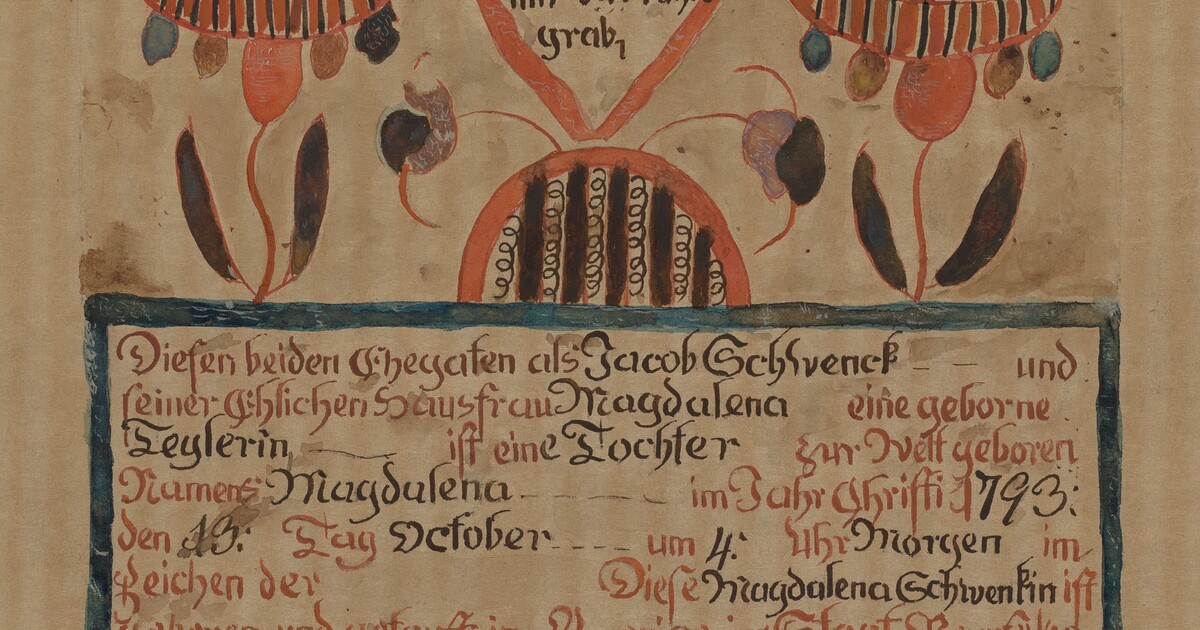 grab,
Diesen beiden Ehegaten als Jacob Schwenck und
seiner Ehlichen Hausfrau Magdalena eine geborne
Teglerin ist eine Tochter zur Welt geboren
Namens Magdalena im Jahr Christi 1793:
den 13: Tag October um 4: Uhr Morgen im
Zeichen der Diese Magdalena Schwenkin ist
geboren und getauft in im Staat